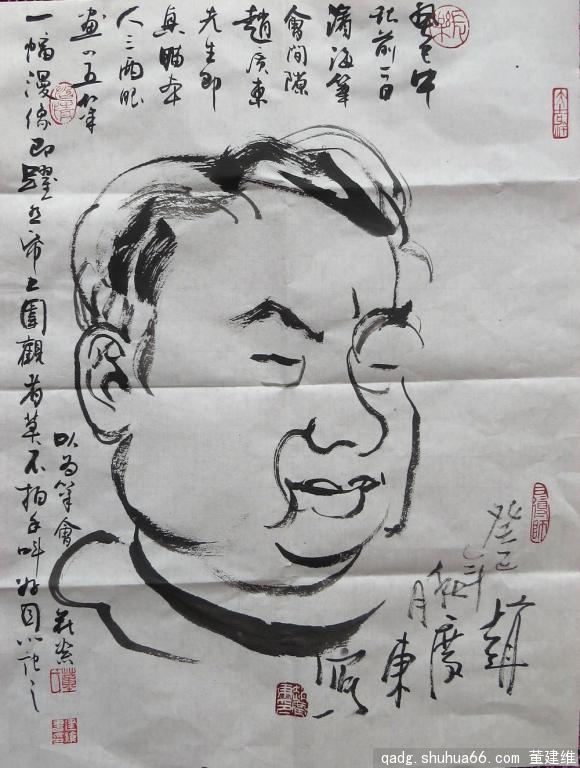 癸巳中
秋前一日
蒲海筆
會間隙
趙廣東
先生即
真瞄本
人三兩眼
畫 五 筆
一幅漫像即躍然帋上圍觀者莫不拍手叫好因以記之
以為筆會
癸巳年
秋月
趙廣東
寫
qadg.shuhua66.com 董建维